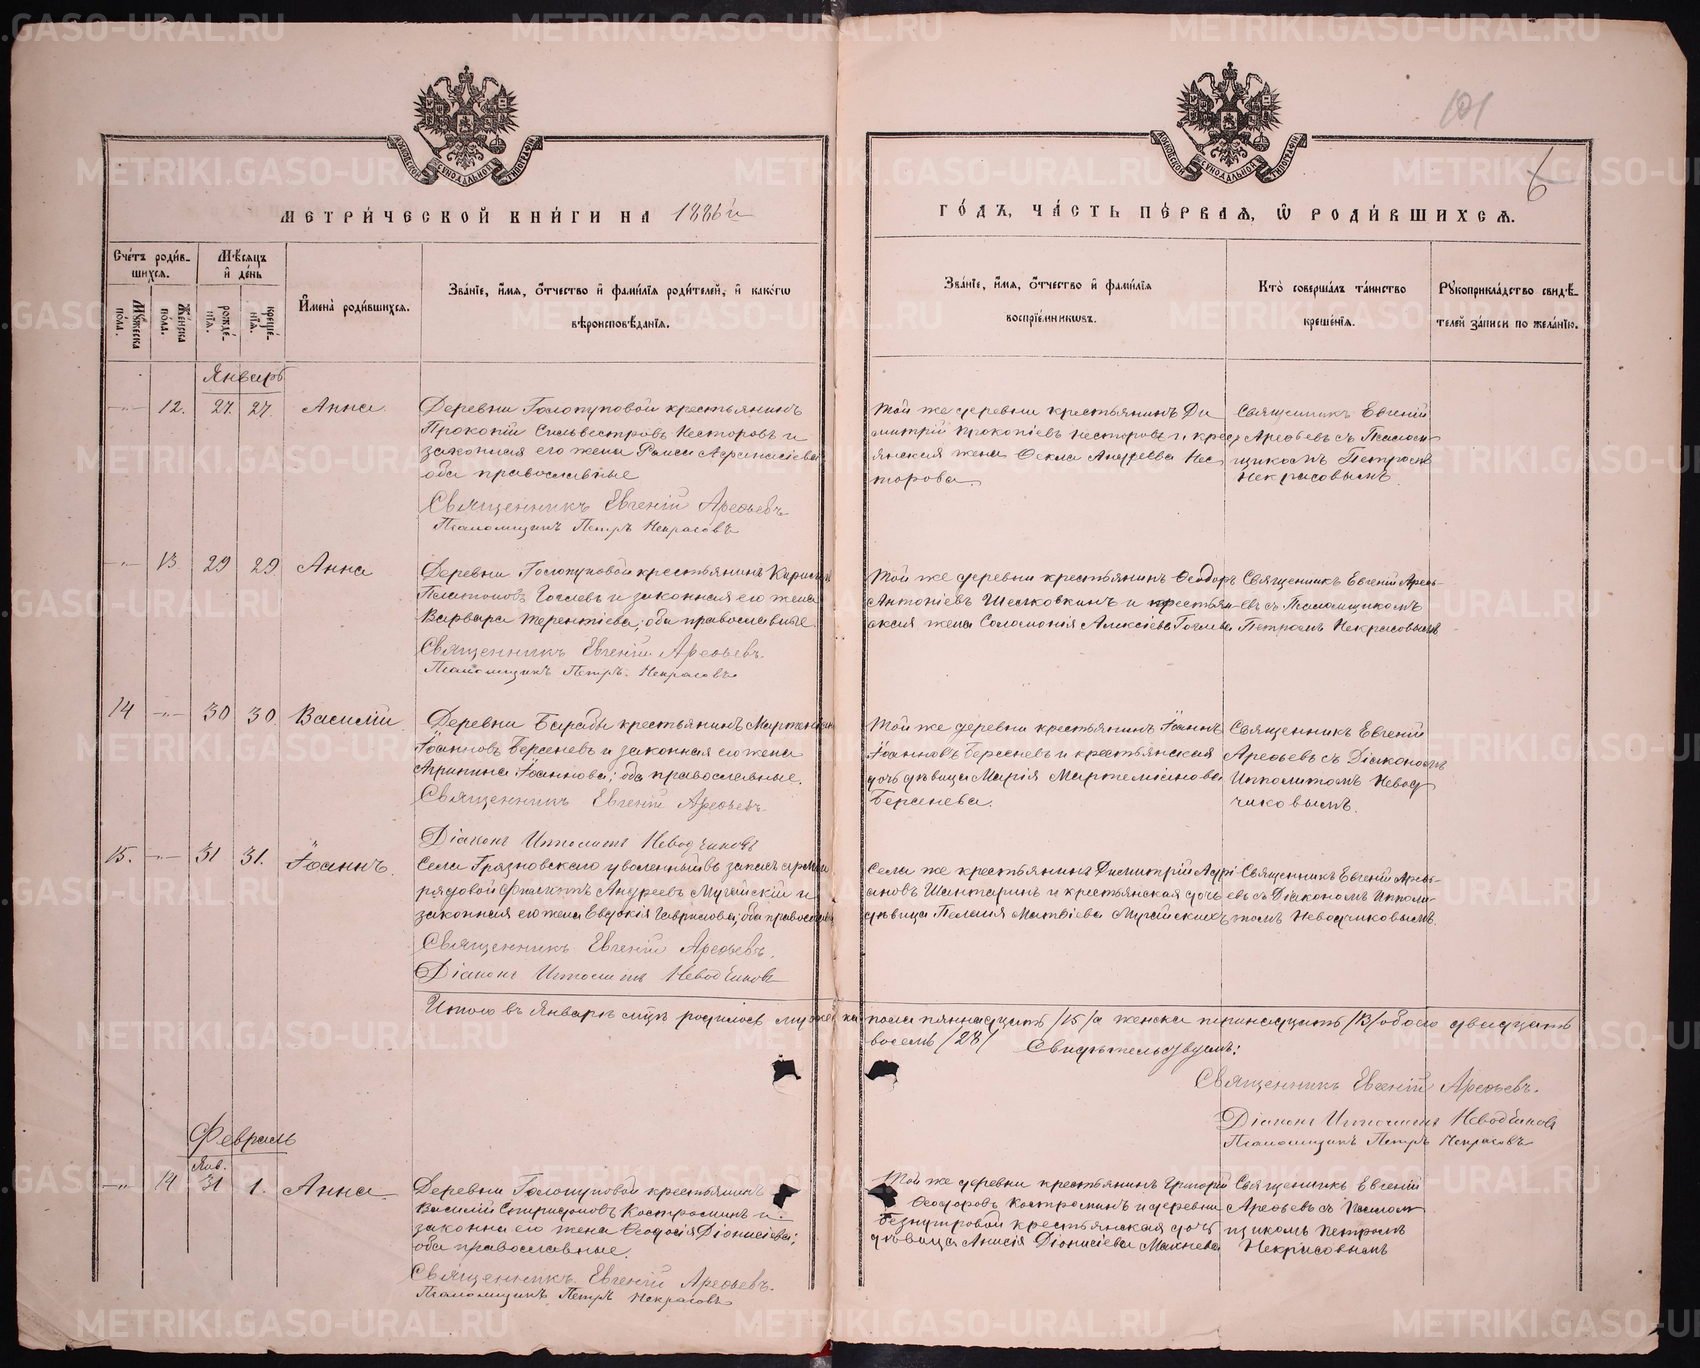 METRIKI.GASO-URAL.RU
101
6
МЕТРИ́ЧЕСКОЙ КНИ́ГИ НА 1886й
ГО́ДЪ, ЧА́СТЬ ПЕ́РВАѦ, Ѡ РОДИ́ВШИХСѦ.
Сче́тъ роди́в-
шихсѧ.
Мѣ́сѧцъ
и҆ де́нь
Мꙋ́жеска по́ла.
Же́нска по́ла.
рожде́-нїѧ.
креще́-нїѧ.
И҆мена̀ роди́вшихсѧ.
Зва́нїе, и҆́мѧ, ѻ҆́тчество и҆ фами́лїѧ роди́телей, и҆ како́гѡ
вѣроисповѣ́данїѧ.
Зва́нїе, и҆́мѧ, ѻ҆́тчество и҆ фами́лїѧ
воспрїе́мникѡвъ.
Кто̀ соверша́лъ та́инство
креще́нїѧ.
Рꙋкоприкла́дство свидѣ́-
телей за́писи по жела́нїю.
Январь
-"- 12. 27. 27. Анна.
Деревни Голопуповой крестьянинъ
Прокопій Сильвестровъ Несторовъ и
законная его жена Раиса Афанасіева
оба православные
Священникъ Евгеній Арефьевъ
Псаломщикъ Петръ Некрасовъ
Той же деревни крестьянинъ Ди
митрій Прокопіевъ Несторовъ и крес
янская жена Фекла Андреева Нес
торова.
Священникъ Евгеній
Арефьевъ съ Псалом
щикомъ Петромъ
Некрасовымъ
-"- 13 29 29 Анна
Деревни Голопуповой крестьянинъ
Платоновъ Гоглевъ и законная его жена
Варвара Терентіева; оба православные.
Священникъ Евгеній Арефьевъ.
Псаломщикъ Петръ Некрасовъ
Той же деревни крестьянинъ Ѳеодоръ
Антоніевъ Шелковкинъ и крестьян-
ская жена Соломонія Алексіева Гоглева
Священникъ Евгеній Арефь-
евъ съ Псаломщикомъ
Петромъ Некрасовымъ
14 -"- 30 30 Василій
Деревни Барабы крестьянинъ
Іоанновъ Берсеневъ и законная его жена
Агрипина Іоаннова; оба православные.
Священникъ Евгеній Арефьевъ
Діаконъ Ипполитъ Неводчиковъ
Той же деревни крестьянинъ Іоаннъ
Іоанновъ Берсеневъ и крестьянская
дочь дѣвица Марія Мартеміанова
Берсенева.
Священникъ Евгеній
Арефьевъ съ Діакономъ
Ипполитомъ Невод
чиковымъ.
15. -"- 31 31. Іоаннъ.
Села Грязновскаго уволенный въ запасъ арміи
рядовой Андреевъ Мугайскій и
законная его жена Евдокія Гаврилова; оба православные
Священникъ Евгеній Арефьевъ.
Діаконъ Ипполитъ Неводчиковъ
Села же крестьянинъ Димитрій Адрі
ановъ Шантаринъ и крестьянская дочь
дѣвица Пелагія Матвіева Мугайскихъ
Священникъ Евгеній Арефь-
евъ съ Діакономъ Ипполи-
томъ Неводчиковымъ.
Итого въ Январѣ мцѣ родилось мужеска пола пятнадцать /15/ а женска тринадцать /13/ обоего двадцать
восемь /28/ Свидѣтельствуемъ:
Священникъ Евгеній Арефьевъ.
Діаконъ Ипполитъ Неводчиковъ
Псаломщикъ Петръ Некрасовъ
Февраль
Янв.
-"- 14 31 1. Анна
Деревни Голопуповой крестьянинъ
Василій Спиридоновъ Костроминъ и
законна его жена Ѳеодосія Діонисіева;
оба православные.
Священникъ Евгеній Арефьевъ.
Псаломщикъ Петръ Некрасовъ
Той же деревни крестьянинъ Григорій
Ѳеодоровъ Костроминъ и деревни
крестьянская дочь
дѣвица Анисія Діонисіева Махнева
Священникъ Евгеній
Арефьевъ съ Псалом
щикомъ Петромъ
Некрасовымъ